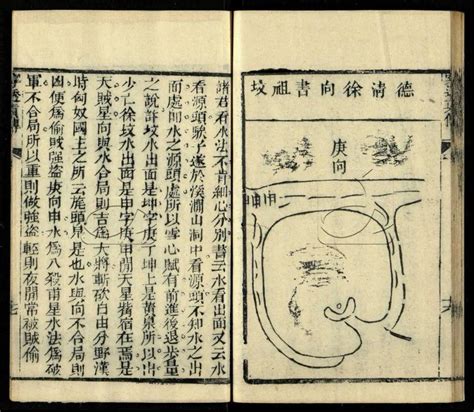 德清徐向書祖坟
庚向
諸君看水法不肯細心分別書云水看出面又云水
看源頭歌子遂於溪澗山洞中看源頭不知水之出
面處即水之源頭處所以雪心賦有前進後退步量
之說許坟水出面是坤字庚丁坤上是黄泉所以出
少亡徐坟水出面是申字庚申開天星觜宿在焉是
天賊星向與水合局則吉為大將斬砍自由分野漢
時匈奴國主之所云旄頭見是也水與向不合局則
凶便為偷賊强盜庚向申水為八殺甫星水法為破
軍不合局所以重則做強盜輕則夜開常被賊偷